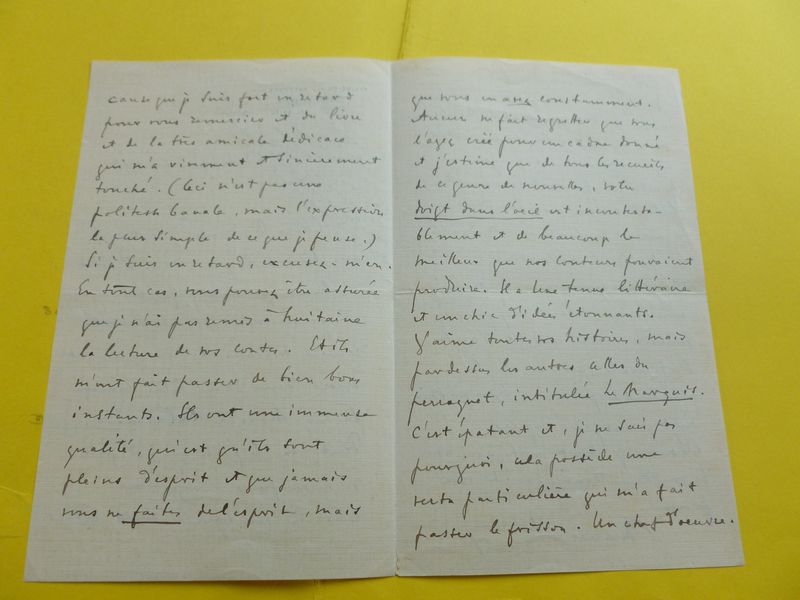 cause que je suis fort en retard
pour vous remercier et du livre
et de la très amicale dédicace
qui m'a vivement et sincèrement
touché. (Ceci n'est pas une
politesse banale, mais l'expression
la plus simple de ce que je pense.)
Si je suis en retard, excusez-m'en.
En tout cas, vous pouvez être assurée
que je n'ai pas remis à huitaine
la lecture de vos contes. Et ils
m'ont fait passer de bien bons
instants. Ils ont une immense
qualité, qui est qu'ils sont
pleins d'esprit et que jamais
vous ne faites de l'esprit, mais
que vous en avez constamment.
Aucun ne fait regretter que vous
l'ayez créé pour un cadre donné
et j'estime que de tous les recueils
de ce genre de nouvelles, votre
doigt dans l'œil est incontesta-
blement et de beaucoup le
meilleur que nos conteurs pouvaient
produire. Il a une tenue littéraire
et un chic d'idées étonnants.
J'aime toutes vos histoires, mais
par dessus les autres celles du
perroquet, intitulée Le Marquis.
C'est épatant et, je ne sais pas
pourquoi, cela possède une
vertu particulière qui m'a fait
passer le frisson. Un chef d'œuvre.